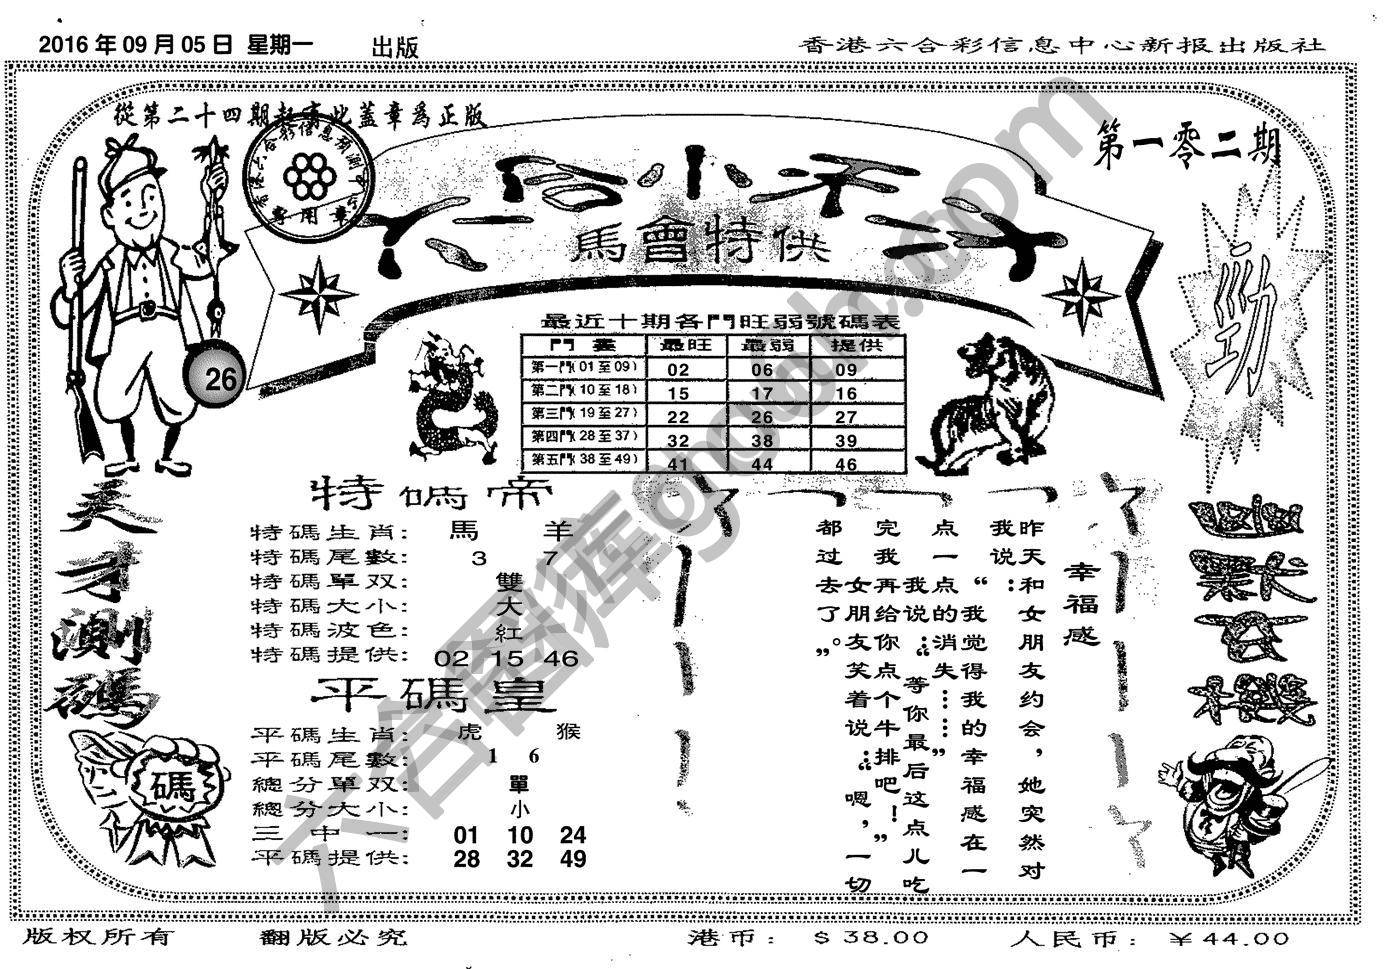 2016 年 09 月 05 日 星期一 出版
香港六合彩信息中心新报出版社
從第二十四期起寄此蓋章爲正版
第一零二期
六合小天才
馬會特供
專用章
勁
26
最近十期各門旺弱號碼表
門 最旺 最弱 提供
第一門(01至09) 02 06 09
第二門(10至18) 15 17 16
第三門(19至27) 22 26 27
第四門(28至37) 32 38 39
第五門(38至49) 41 44 46
天才測碼
碼
特碼帝
特碼生肖: 馬 羊
特碼尾數: 3 7
特碼單双: 雙
特碼大小: 大
特碼波色: 紅
特碼提供: 02 15 46
平碼皇
平碼生肖: 虎 猴
平碼尾數: 1 6
總分單双: 單
總分大小: 小
三中一: 01 10 24
平碼提供: 28 32 49
幸福感
昨天和女朋友约会，她突然对
我说：“我觉得我的幸福感在一
点一点的消失……”
我说：“等你最后这点儿吃
完我再给你点个牛排吧！”
女朋友笑着说：“嗯，一切
都过去了。”
六合图库
版权所有 翻版必究 港币： $38.00 人民币： ￥44.00